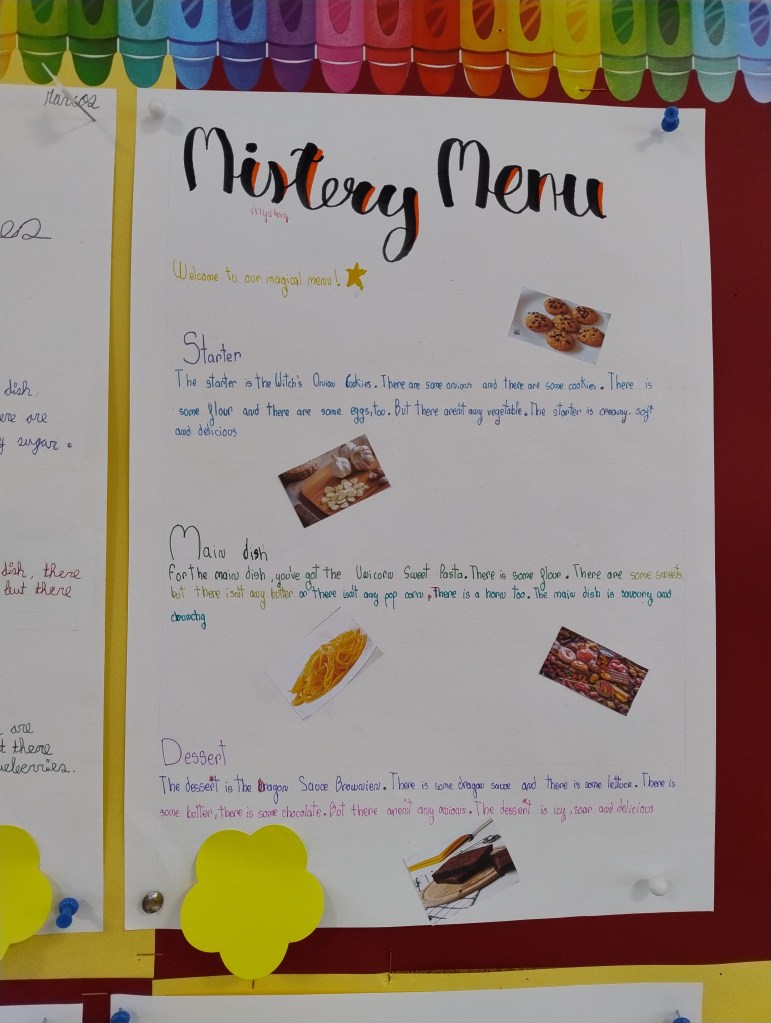 Marcos
Mistery Menu
mystery
Welcome to our magical menu!
Starter
The starter is the Witch's Onion Cookies. There are some onions and there are some cookies. There is
some flour and there are some eggs, too. But there aren't any vegetable. The starter is creamy, soft
and delicious
Main dish
For the main dish, you've got the Unicorn Sweet Pasta. There is some flour. There are some sweets.
but there isn't any butter or there isn't any pop corn. There is a horn too. The main dish is savoury and
chrunchy
Dessert
The dessert is the Dragon Sauce Brownien. There is some dragon sauce and there is some lettuce. There is
some butter, there is some chocolate. But there aren't any onions. The dessert is icy, soar and delicious
dish,
ere are
y sugar.
dish, there
but there
are
t there
ueberries.